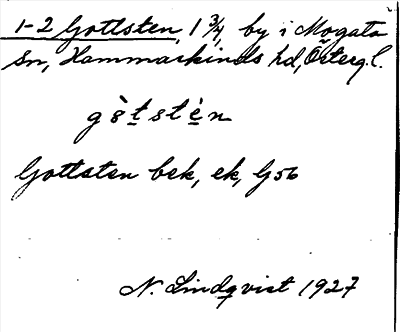 1-2 Gottsten, 1 3/4, by i Mogata
sn, Hammarkinds hd, Österg.l.
gòtstèn
Gottsten bek, ek, G56
N. Lindqvist 1927